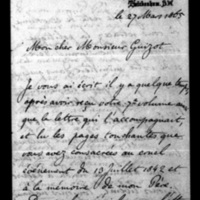 le 27 Mars 1865
Mon cher Monsieur Guizot
Je vous ai écrit il y a quelque temps
après avoir reçu votre 7e volume avec
que la lettre qui l'accompagnait,
et lu les pages touchantes que
vous avez consacrées au cruel
événement du 13 juillet 1842 et
à la mémoire de mon Père